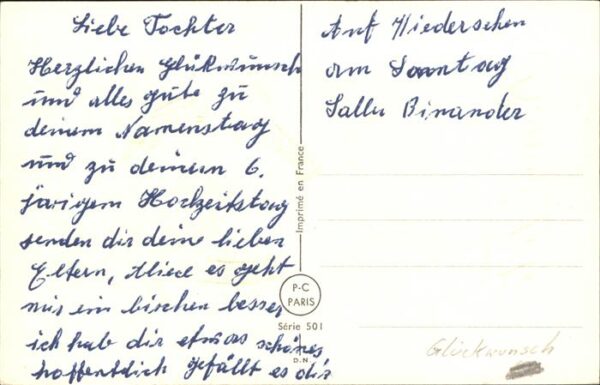 Liebe Tochter
Herzlichen Glükwunsch
und alles gute zu
deinem Namenstag
und zu deinem 6.
järigem Hochzeitstag
senden dir deine lieben
Eltern, Aliece es geht
mir ein bischen besser
ich hab dir etwas schönes
hoffentdich gefällt es dir
Auf Wiedersehen
am Sonntag
Imprimé en France
P-C
PARIS
Série 501
D.N
Glückwunsch